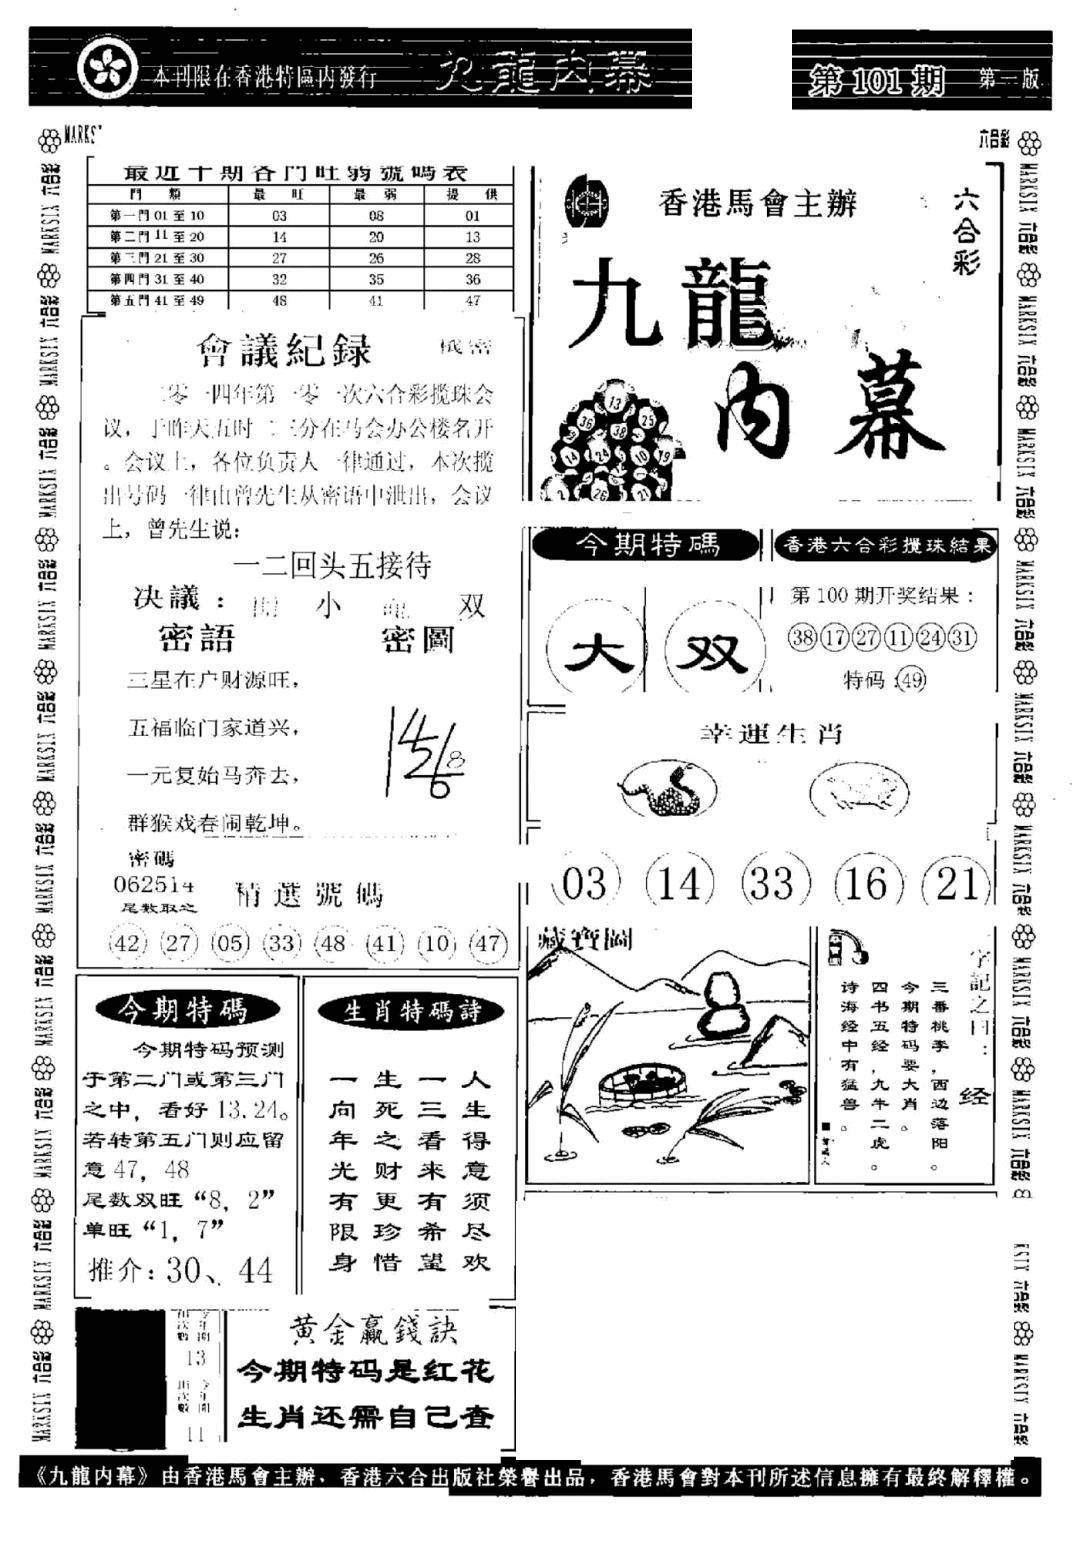 本刊限在香港特區内發行
九龍内幕
第101期
第一版
最近十期各門旺弱號碼表
門類 最旺 最弱 提供
第一門01至10 03 08 01
第二門11至20 14 20 13
第三門21至30 27 26 28
第四門31至40 32 35 36
第五門41至49 48 41 47
會議紀録
二零一四年第一零一次六合彩揽珠会
议，于昨天五时二三分在马会办公楼名开
。会议上，各位负责人一律通过，本次揽
出号码一律由曾先生从密语中泄出，会议
上，曾先生说：
一二回头五接待
决議：
小
双
密語
密圖
三星在户财源旺，
五福临门家道兴，
一元复始马奔去，
群猴戏春闹乾坤。
密碼
062514
尾數取之
精選號碼
42 27 05 33 48 41 10 47
今期特碼
今期特码预测
于第二门或第三门
之中，看好13.24。
若转第五门则应留
意47，48
尾数双旺“8，2”
单旺“1，7”
推介：30、44
生肖特碼詩
人生得意须尽欢
一三看来有希望
生死之财更珍惜
一向年光有限身
13
11
黄金赢錢訣
今期特码是红花
生肖还需自己查
香港馬會主辦
六合彩
九龍
内幕
今期特碼
大
双
香港六合彩攪珠結果
第100期开奖结果：
38 17 27 11 24 31
特码：49
幸運生肖
03 14 33 16 21
藏寶圖
字記之曰：
经
三番桃李，西边落阳。
今期特码要大肖。
四书五经，九牛二虎。
诗海经中有猛兽。
MARKSIX 六合彩
《九龍内幕》由香港馬會主辦，香港六合出版社榮譽出品，香港馬會對本刊所述信息擁有最終解釋權。